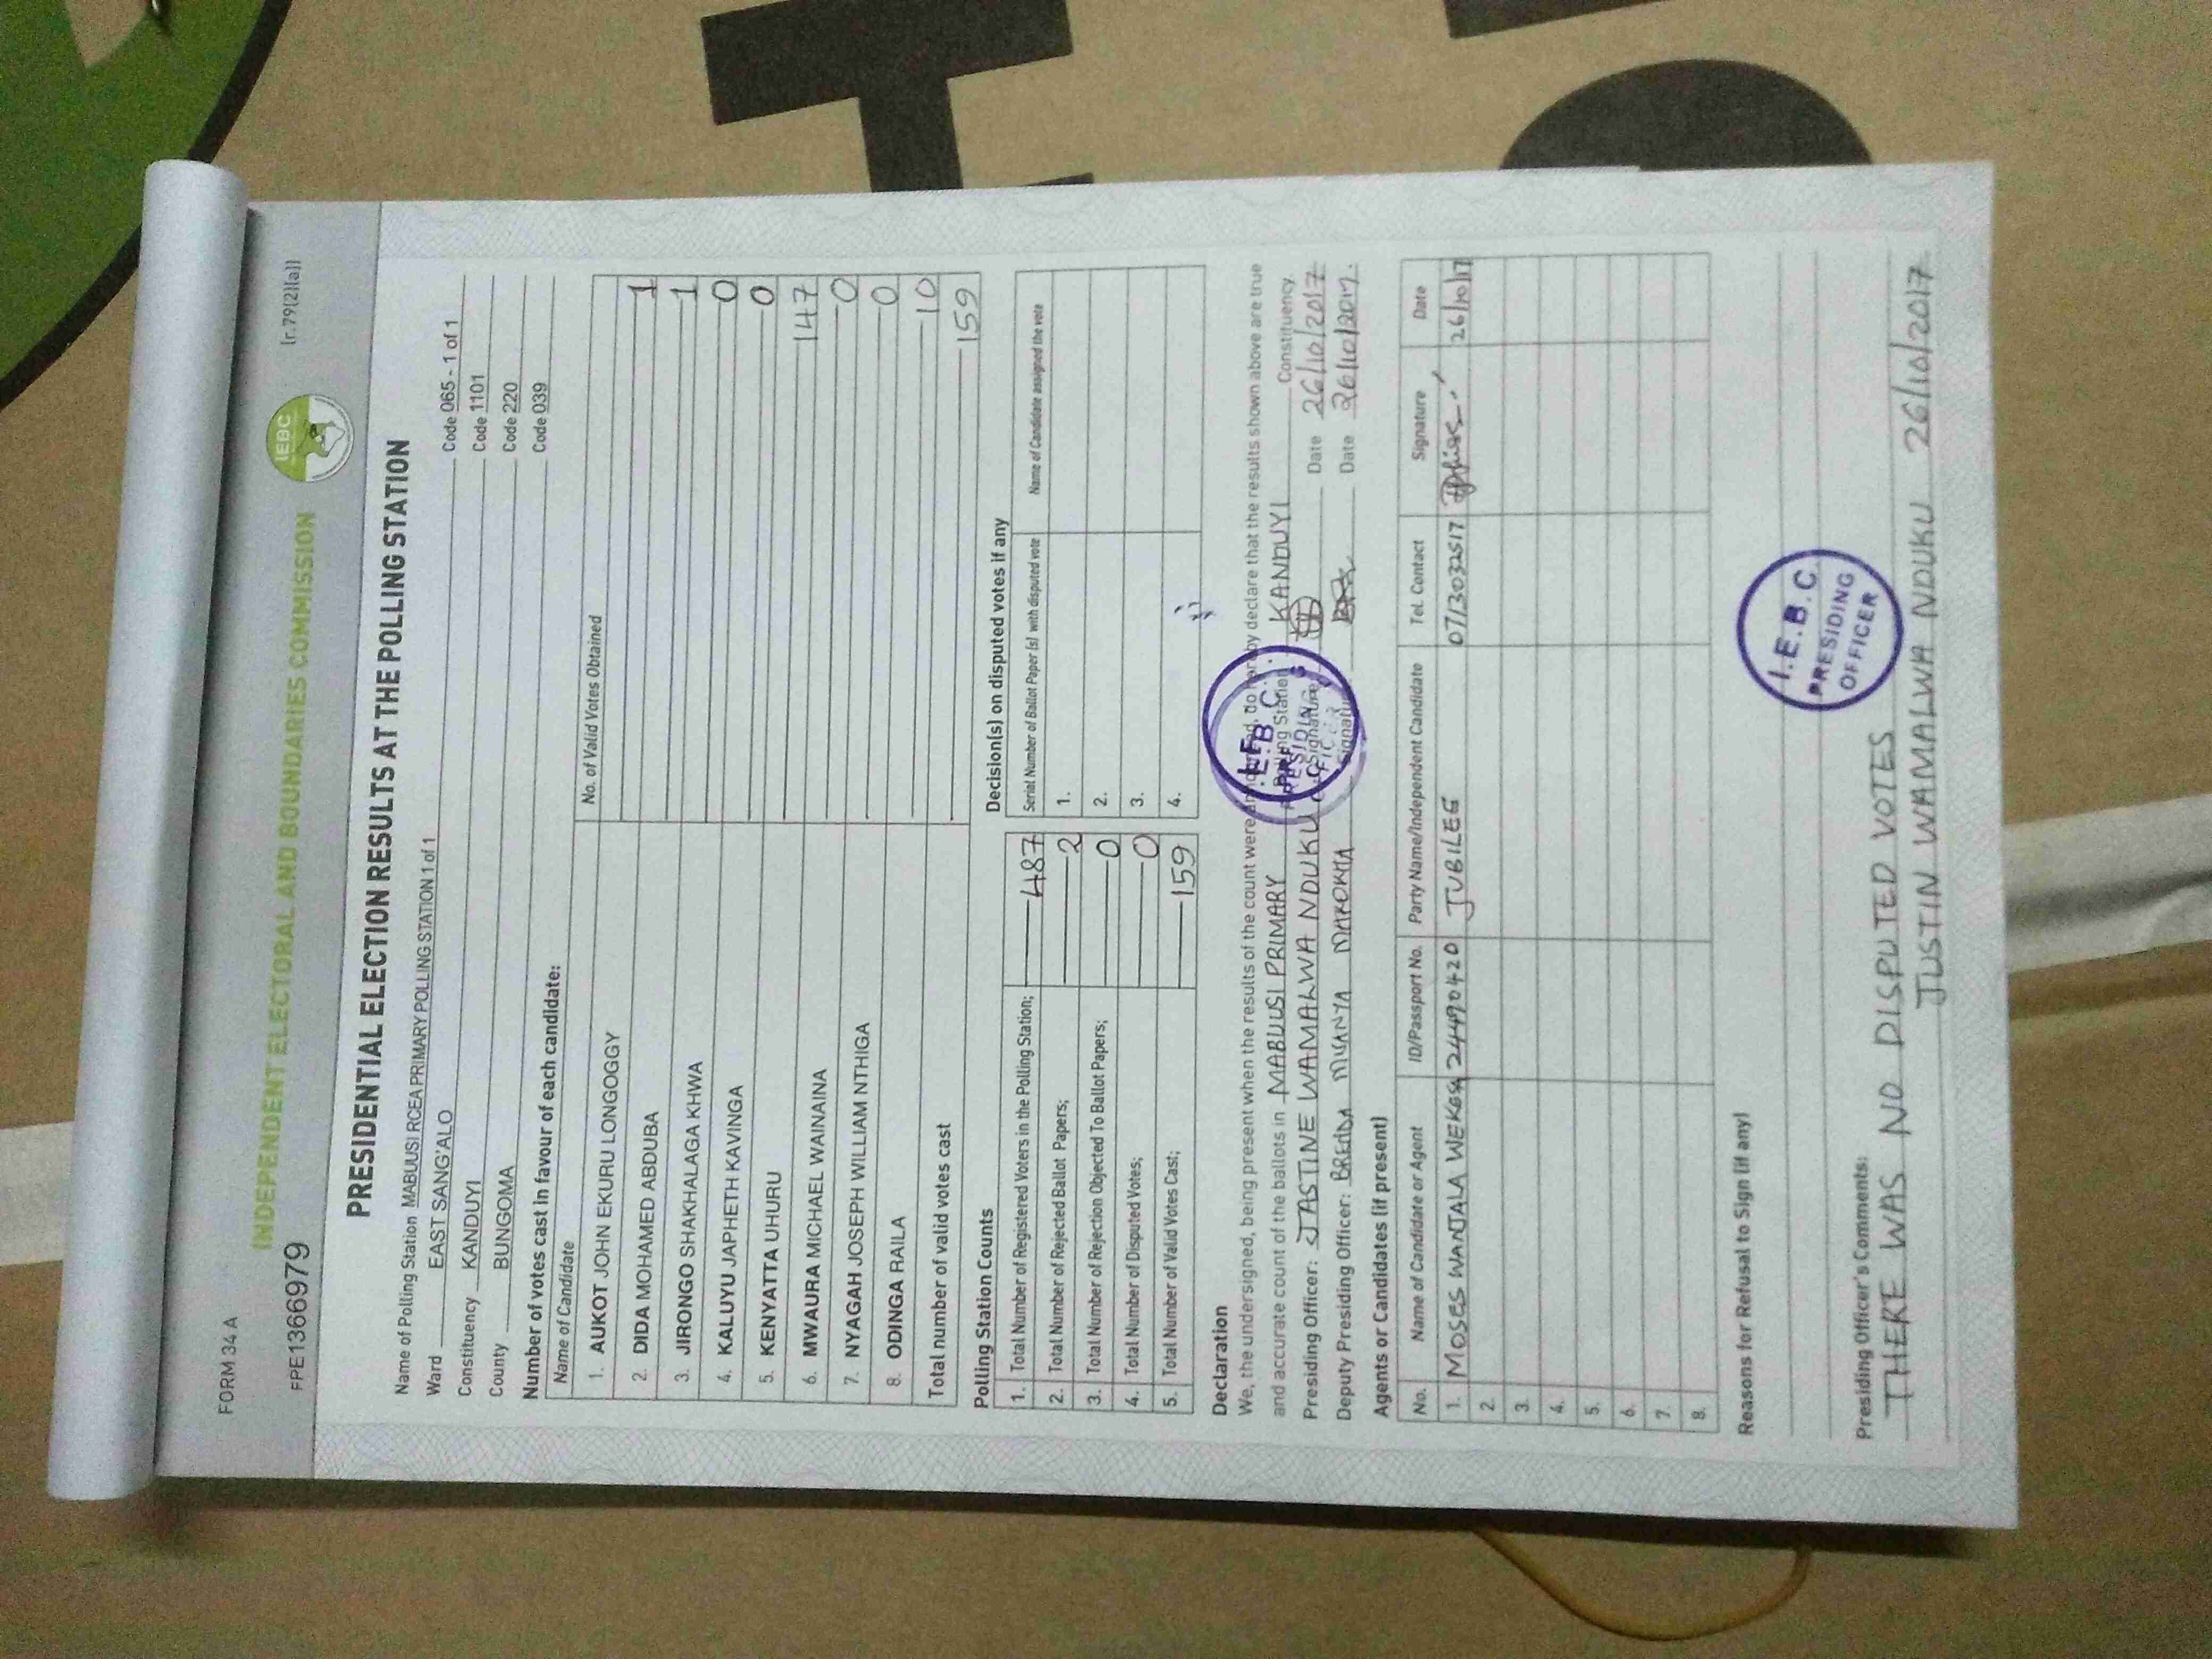 FORM 34 A
(r.79(2)(a))
FPE1366979
INDEPENDENT ELECTORAL AND BOUNDARIES COMMISSION
IEBC
PRESIDENTIAL ELECTION RESULTS AT THE POLLING STATION
Name of Polling Station MABUUSI RCEA PRIMARY POLLING STATION 1 of 1 Code 065 - 1 of 1
Ward EAST SANG'ALO Code 1101
Constituency KANDUYI Code 220
County BUNGOMA Code 039
Number of votes cast in favour of each candidate:
Name of Candidate No. of Valid Votes Obtained
1. AUKOT JOHN EKURU LONGOGGY 1
2. DIDA MOHAMED ABDUBA 1
3. JIRONGO SHAKHALAGA KHWA 0
4. KALUYU JAPHETH KAVINGA 0
5. KENYATTA UHURU 147
6. MWAURA MICHAEL WAINAINA 0
7. NYAGAH JOSEPH WILLIAM NTHIGA 0
8. ODINGA RAILA 10
Total number of valid votes cast 159
Polling Station Counts
1. Total Number of Registered Voters in the Polling Station; 487
2. Total Number of Rejected Ballot Papers; 2
3. Total Number of Rejection Objected To Ballot Papers; 0
4. Total Number of Disputed Votes; 0
5. Total Number of Valid Votes Cast; 159
Decision(s) on disputed votes if any
Serial Number of Ballot Paper (s) with disputed vote Name of Candidate assigned the vote
1.
2.
3.
4.
Declaration
We, the undersigned, being present when the results of the count were announced, do hereby declare that the results shown above are true
and accurate count of the ballots in MABUUSI PRIMARY Polling Station, KANDUYI Constituency.
Presiding Officer: JASTINE WAMALWA NDUKU Signature Date 26/10/2017
Deputy Presiding Officer: BRENDA MUANYA MAKOKHA Signature Date 26/10/2017.
I.E.B.C.
PRESIDING
OFFICER
Agents or Candidates (if present)
No. Name of Candidate or Agent ID/Passport No. Party Name/Independent Candidate Tel. Contact Signature Date
1. MOSES WANJALA WEKESA 24490420 JUBILEE 0713032517 26/10/17
2.
3.
4.
5.
6.
7.
8.
Reasons for Refusal to Sign (if any)
I.E.B.C.
PRESIDING
OFFICER
Presiding Officer's Comments:
THERE WAS NO DISPUTED VOTES
JUSTIN WAMALWA NDUKU 26/10/2017